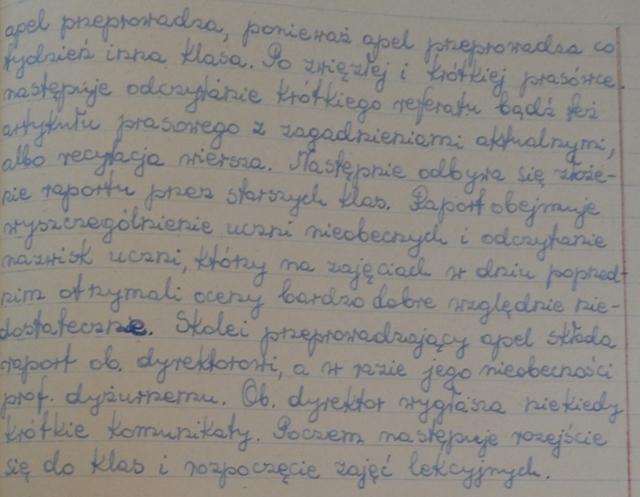 apel przeprowadza, ponieważ apel przeprowadza co
tydzień inna klasa. Po zwięzłej i krótkiej prasówce
następuje odczytanie krótkiego referatu bądź też
artykułu prasowego z zagadnieniami aktualnymi,
albo recytacja wiersza. Następnie odbywa się złoże-
nie raportu przez starszych klas. Raport obejmuje
wyszczególnienie uczni nieobecnych i odczytanie
nazwisk uczni, którzy na zajęciach w dniu poprzed-
nim otrzymali oceny bardzo dobre względnie nie-
dostateczne. Skolei przeprowadzający apel składa
raport ob. dyrektorowi, a w razie jego nieobecności
prof. dyżurnemu. Ob. dyrektor wygłasza niekiedy
krótkie komunikaty. Poczem następuje rozejście
się do klas i rozpoczęcie zajęć lekcyjnych.